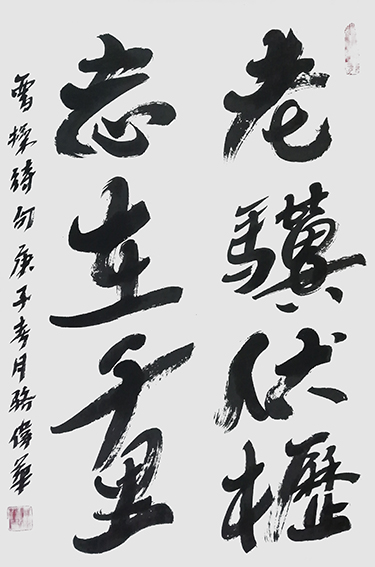 老驥伏櫪
志在千里
曹操詩句庚子春月駱偉華